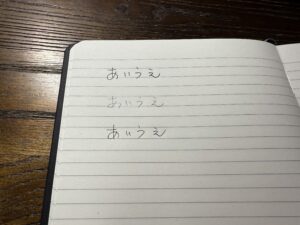 あいうえ
あいうえ
あいうえ